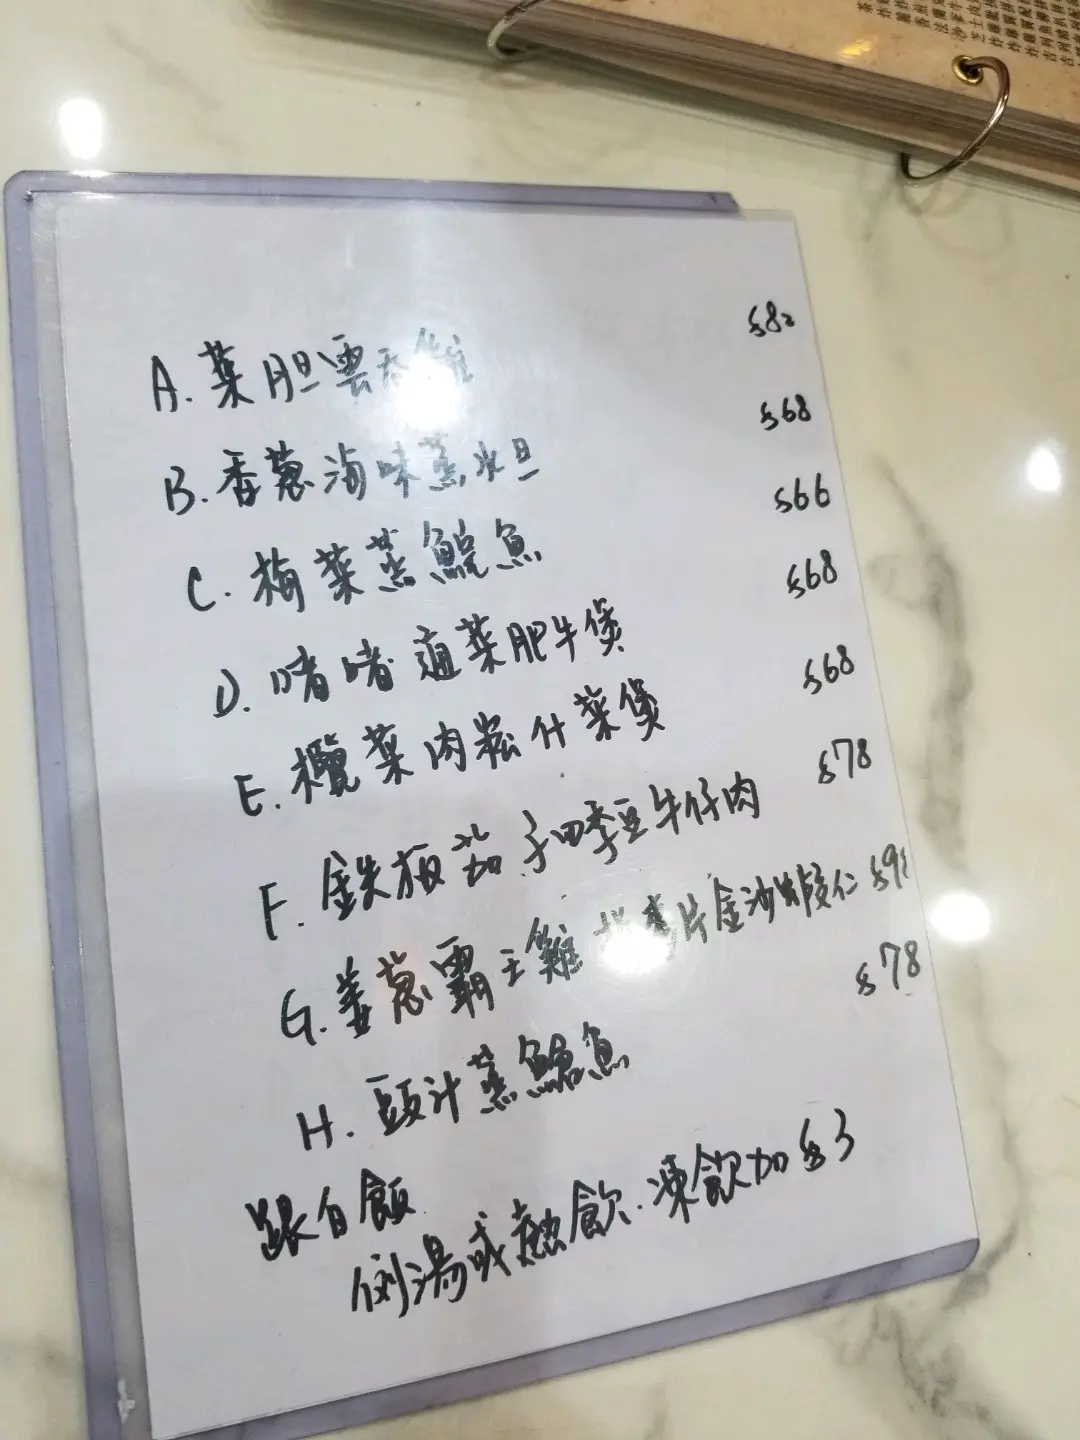 A. 菜胆雲吞雞 $82
B. 香蔥滷味蒸水旦 $68
C. 梅菜蒸鯇魚 $66
D. 啫啫通菜肥牛煲 $68
E. 欖菜肉崧什菜煲 $68
F. 鉄板茄子四季豆牛仔肉 $78
G. 姜蔥霸王雞 拼麥片金沙蝦仁
H. 頭汁蒸鱠魚 $78
跟白飯
例湯或熱飲.凍飲加$3